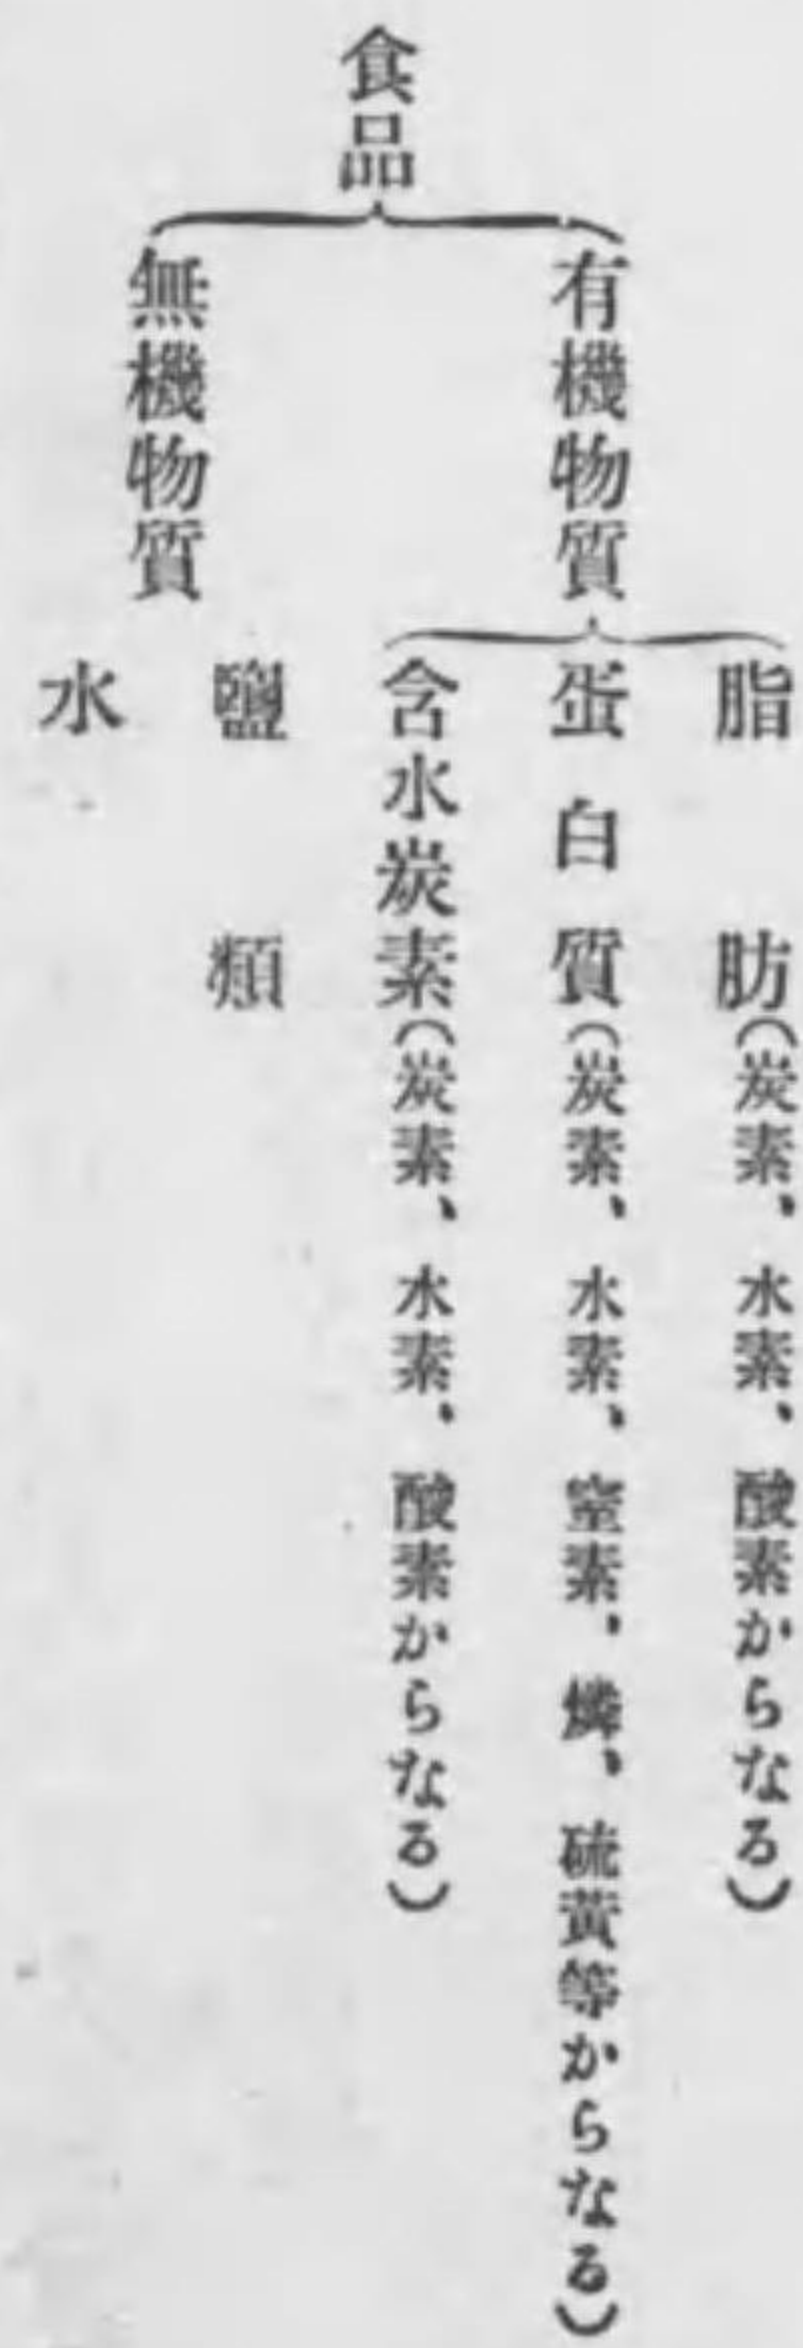 食品
有機物質
脂肪(炭素、水素、酸素からなる)
蛋白質(炭素、水素、窒素、燐、硫黄等からなる)
含水炭素(炭素、水素、酸素からなる)
無機物質
鹽類
水